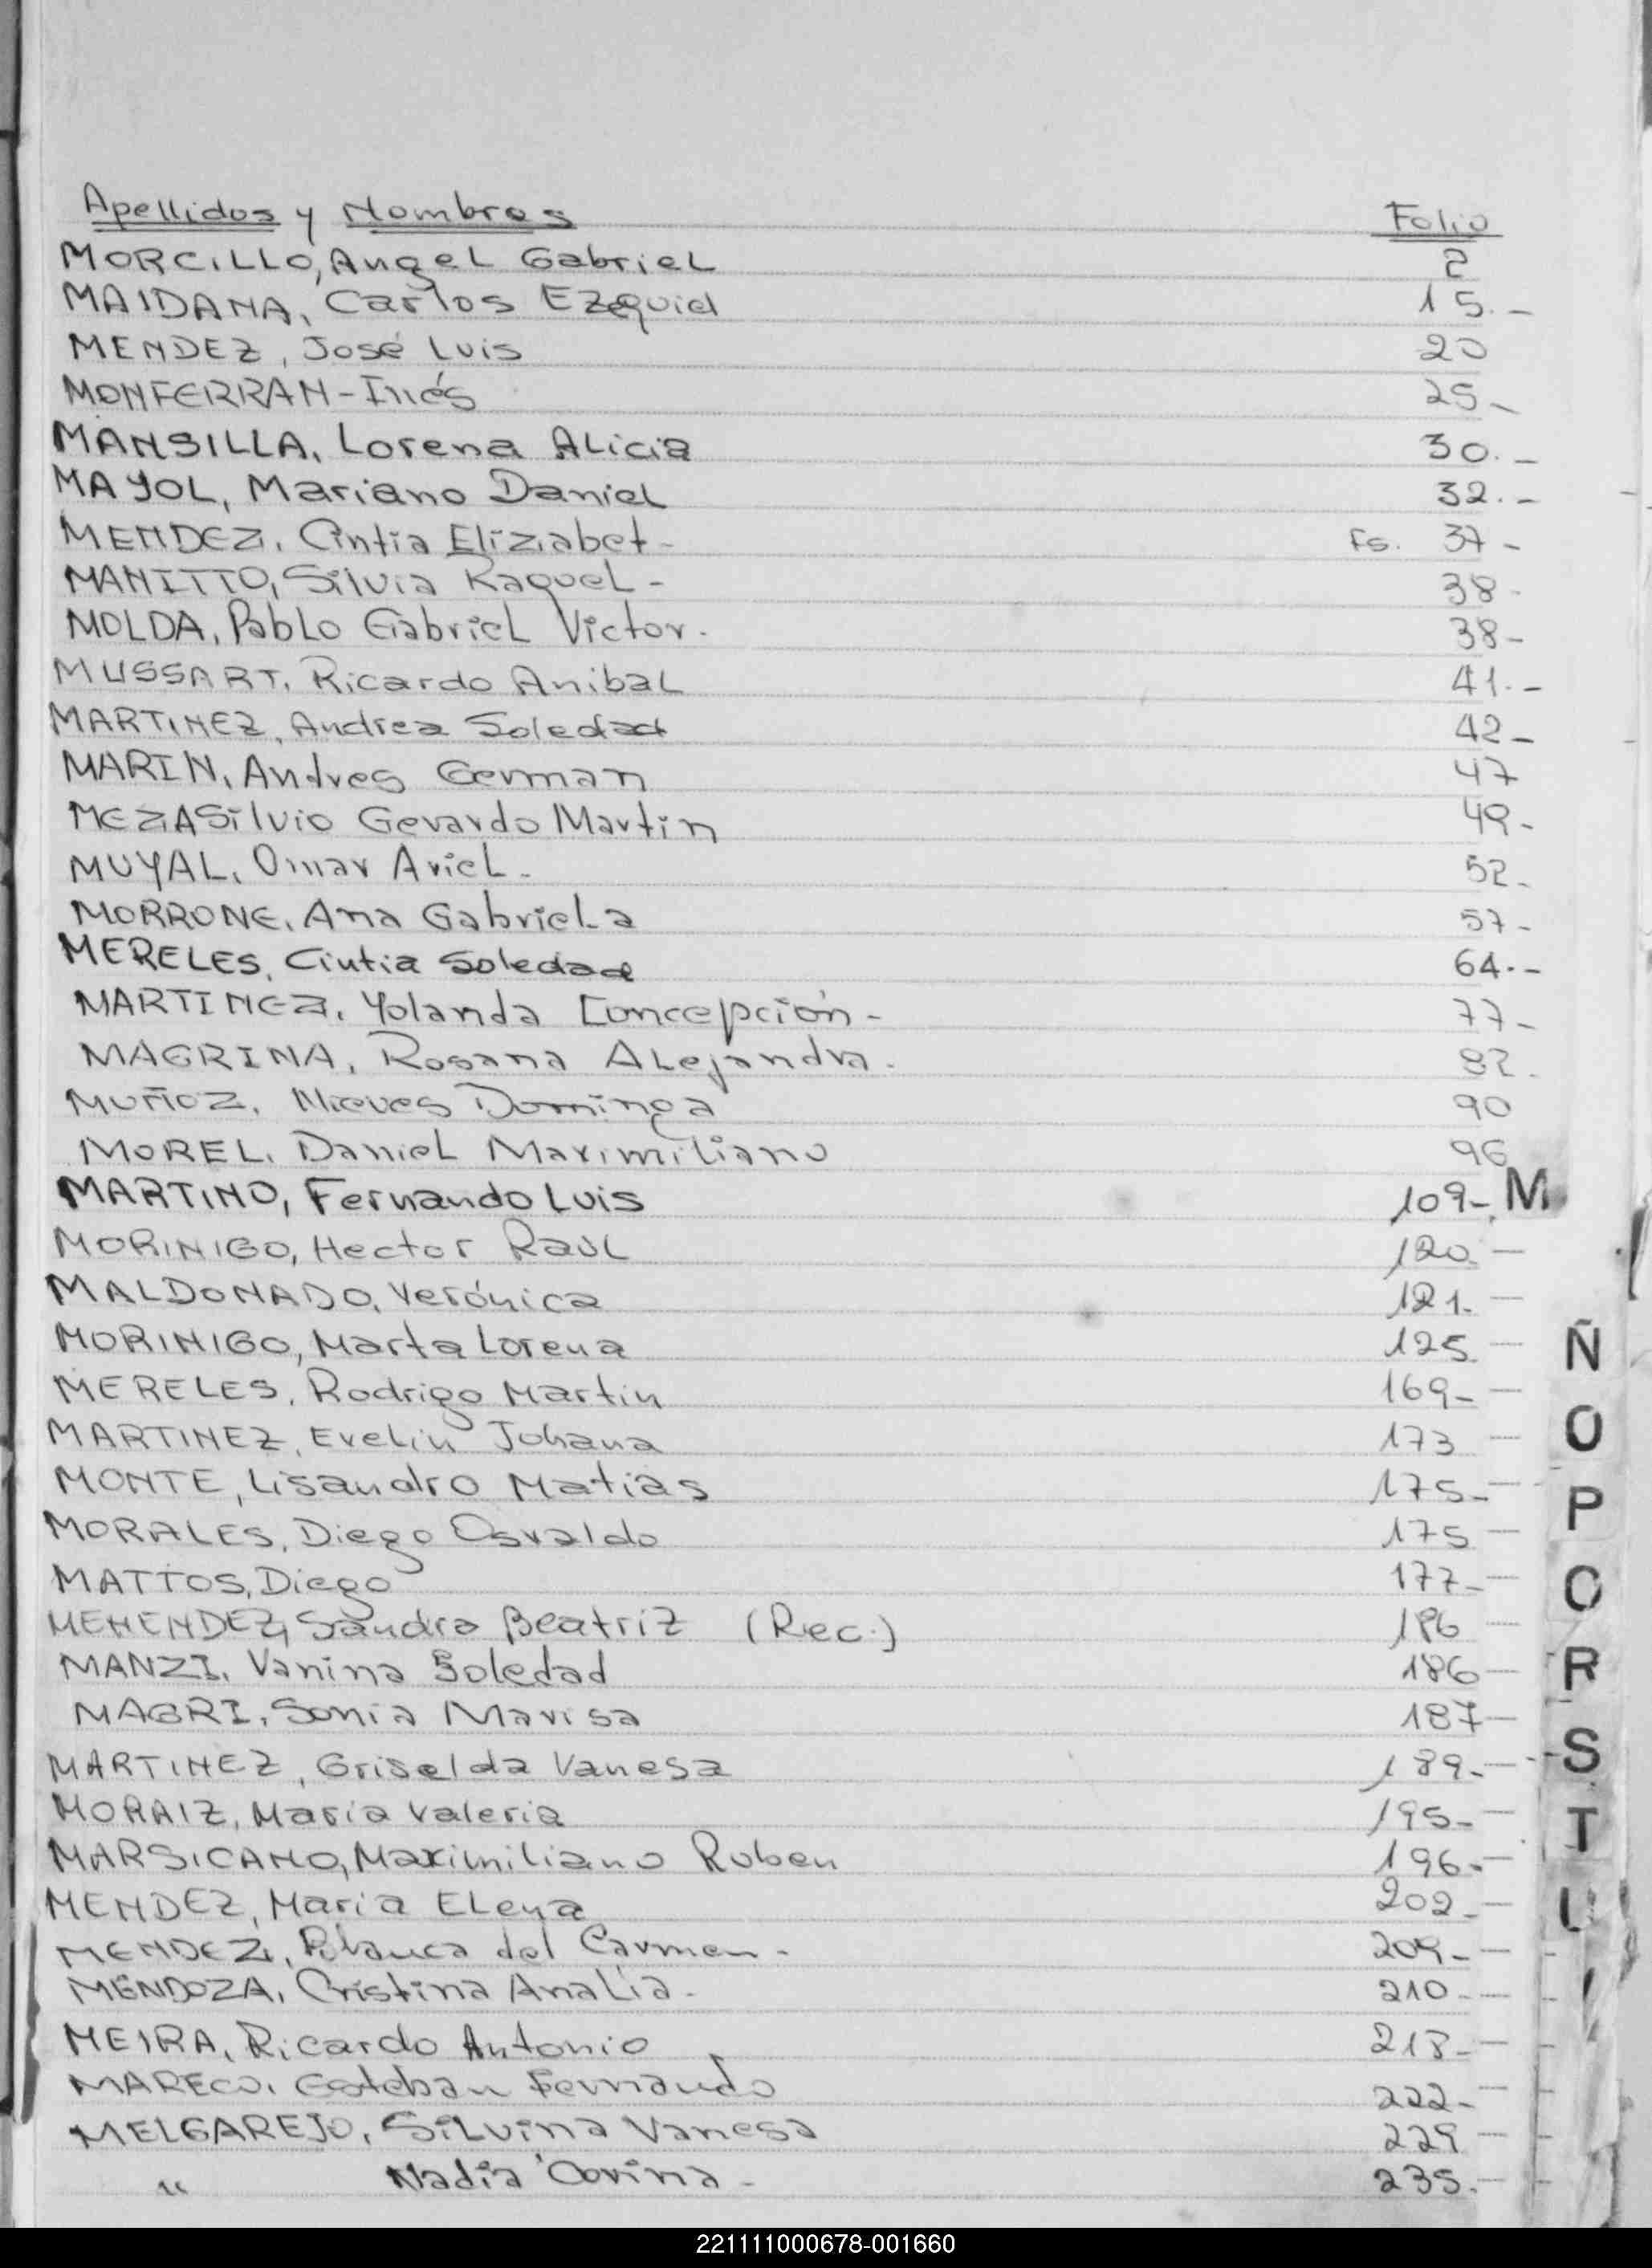 Apellidos y Nombres Folio
MORCILLO, Angel Gabriel 2
MAIDANA, Carlos Ezequiel 15.-
MENDEZ, José Luis 20
MONFERRAN-Inés 25-
MANSILLA, Lorena Alicia 30.-
MAYOL, Mariano Daniel 32.-
MENDEZ, Cintia Elizabet- Fs. 37-
MANITTO, Silvia Raquel- 38-
MOLDA, Pablo Gabriel Victor. 38-
MUSSART, Ricardo Anibal 41.-
MARTINEZ, Andrea Soledad 42-
MARIN, Andres German 47
MEZA Silvio Gerardo Martin 49-
MUYAL, Omar Ariel- 52-
MORRONE, Ana Gabriela 57-
MERELES, Cintia Soledad 64.-
MARTINEZ, Yolanda Concepción- 77-
MAGRINA, Rosana Alejandra. 82.
MUÑOZ, Nieves Dominga 90
MOREL, Daniel Maximiliano 96
MARTINO, Fernando Luis 109- M
MORINIGO, Hector Raul 120.-
MALDONADO, Verónica 121.-
MORINIGO, Marta Lorena 125 -
Ñ
MERELES, Rodrigo Martin 169-
MARTINEZ, Evelin Johana 173 -
O
MONTE, Lisandro Matias 175-
MORALES, Diego Osvaldo 175 -
P
MATTOS, Diego 177-
O
MENENDEZ, Sandra Beatriz (Rec.) 186
MANZI, Vanina Soledad 186-
R
MAGRI, Sonia Marisa 187-
MARTINEZ, Griselda Vanesa 189.-
S
MORAIZ, Maria Valeria 195-
T
MARSICANO, Maximiliano Ruben 196.-
MENDEZ, Maria Elena 202-
U
MENDEZ, Blanca del Carmen- 209-
MENDOZA, Cristina Analía- 210-
MEIRA, Ricardo Antonio 218-
MARECO, Esteban Fernando 222-
MELGAREJO, Silvina Vanesa 229 -
" Nadia Corina- 235.-
221111000678-001660